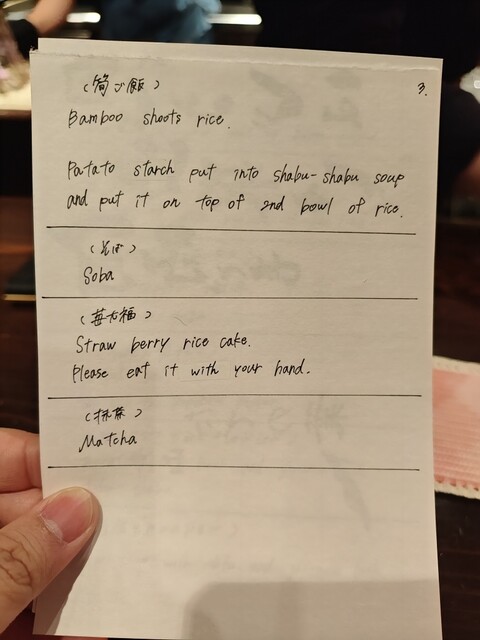 3.
(筍ご飯)
Bamboo shoots rice.
Patato starch put into shabu-shabu soup
and put it on top of 2nd bowl of rice.
(そば)
Soba
(苺大福)
Straw berry rice cake.
Please eat it with your hand.
(抹茶)
Matcha